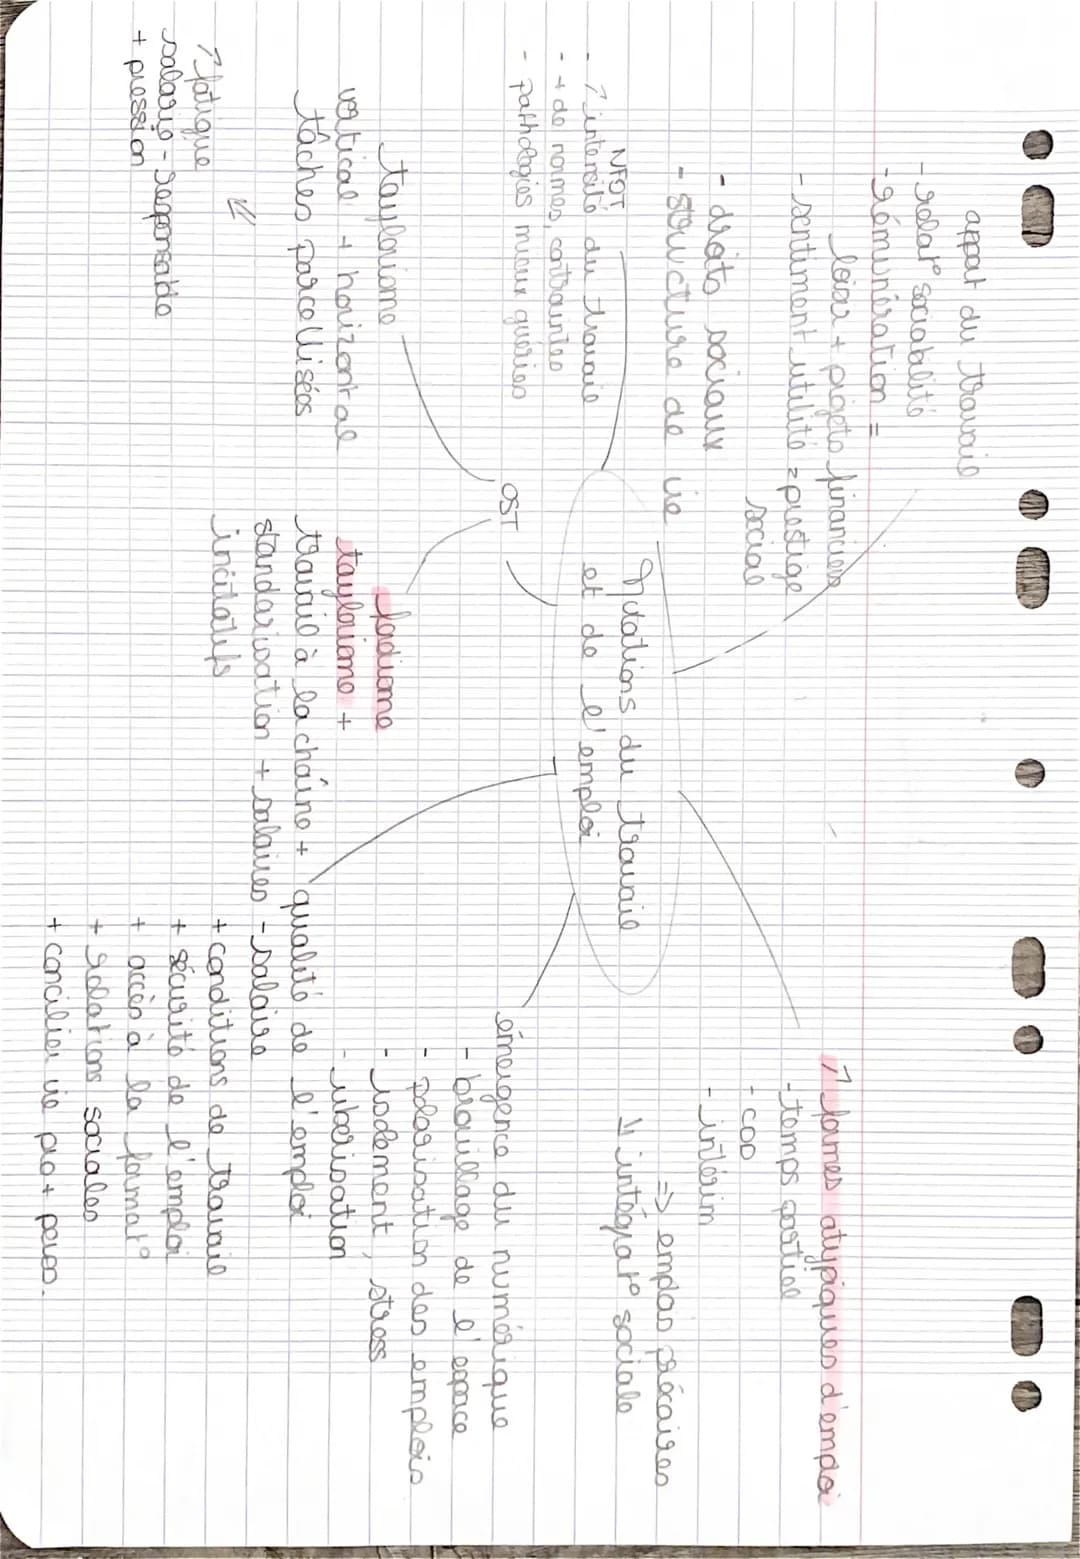 Mutations du travail
et de l'emploi
appart du travail
- relat° sociabilité
- rémunération =
loisir + projets financiers
- sentiment utilité = prestige
social
- droits sociaux
- structure de vie
NFOT
- ↗ intensité du travail
- + de normes, contraintes
- pathologies mieux guéries
OST
taylorisme
vertical + horizontal
tâches parcellisées
↗ fatigue
salarié - responsable
+ pression
fordisme
taylorisme +
travail à la chaîne +
standardisation + salaires
incitatifs
↗ formes atypiques d'emploi
- temps partiel
- CDD
- intérim
=> emplois précaires
↘ intégrat° sociale
émergence du numérique
- brouillage de l'espace
- polarisation des emplois
- isolement, stress
- uberisation
qualité de l'emploi
- salaire
+ conditions de travail
+ sécurité de l'emploi
+ accès à la format°
+ relations sociales
+ concilier vie pro + perso.